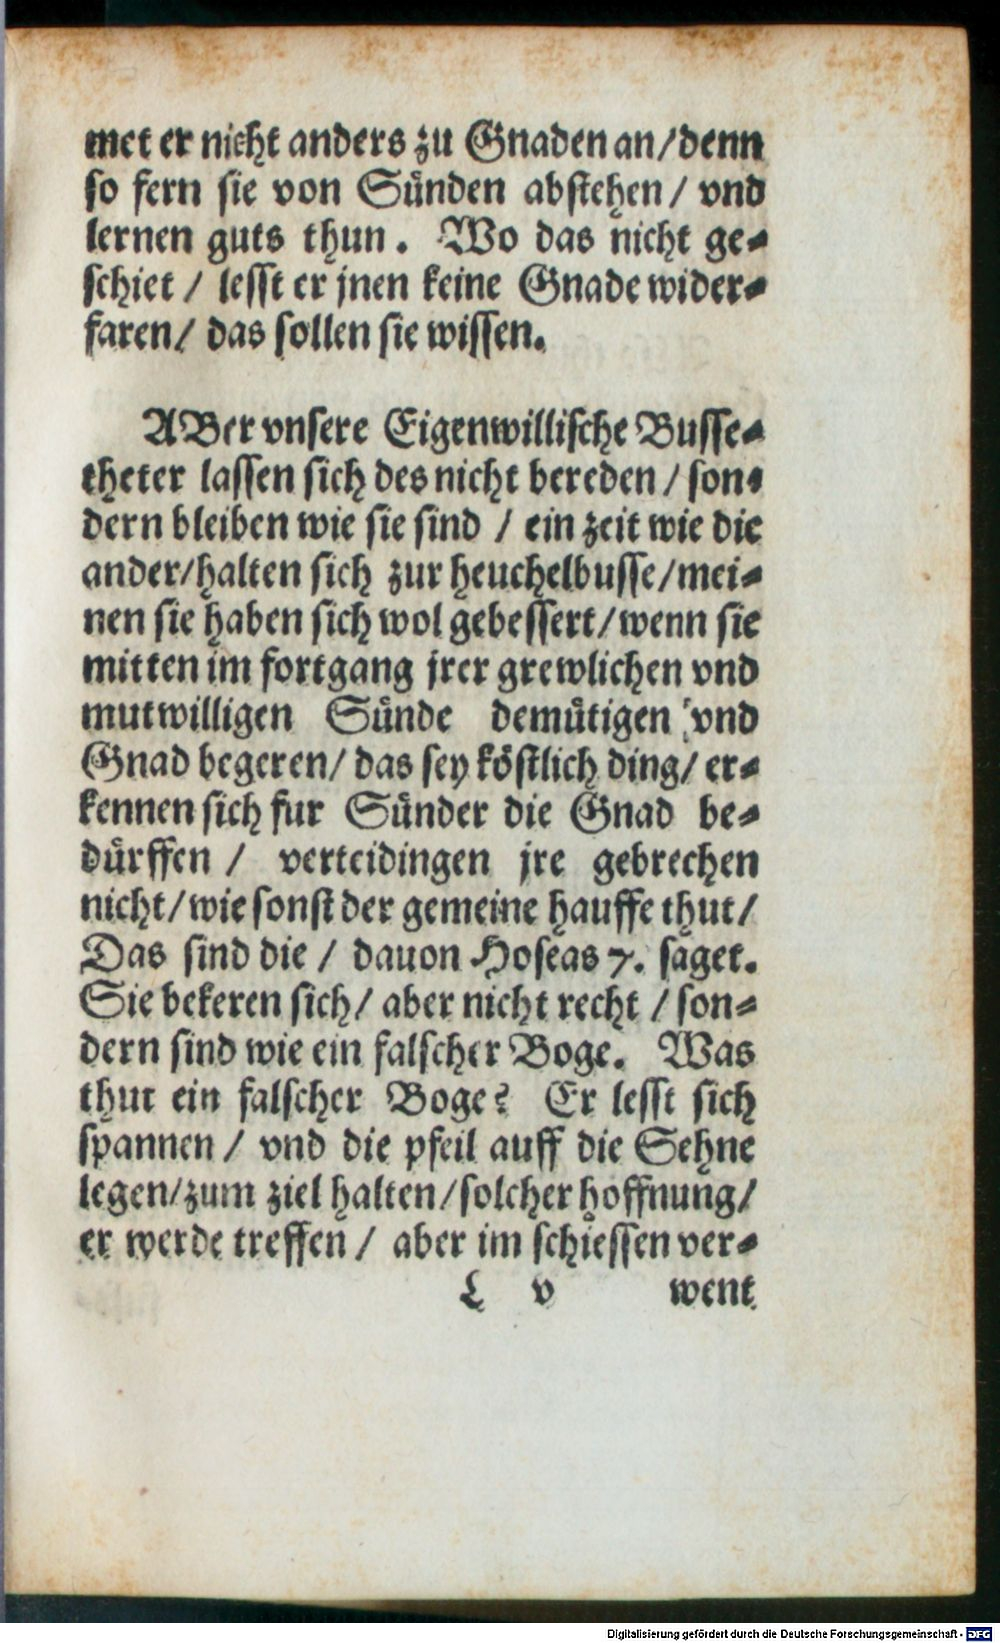 met er nicht anders zu Gnaden an/denn
so fern sie von Sünden abstehen/ vnd
lernen guts thun. Wo das nicht ge-
schiet / lesst er jnen keine Gnade wider-
faren/ das sollen sie wissen.
ABer vnsere Eigenwillische Busse-
theter lassen sich des nicht bereden / son-
dern bleiben wie sie sind / ein zeit wie die
ander/halten sich zur heuchelbusse/mei-
nen sie haben sich wol gebessert/wenn sie
mitten im fortgang jrer grewlichen vnd
mutwilligen Sünde demütigen vnd
Gnad begeren/ das sey köstlich ding/ er-
kennen sich fur Sünder die Gnad be-
dürffen / verteidingen jre gebrechen
nicht/wie sonst der gemeine hauffe thut/
Das sind die / dauon Hoseas 7. saget.
Sie bekeren sich/ aber nicht recht / son-
dern sind wie ein falscher Boge. Was
thut ein falscher Boge? Er lesst sich
spannen / vnd die pfeil auff die Sehne
legen/zum ziel halten/solcher hoffnung/
er werde treffen / aber im schiessen ver-
L v went
Digitalisierung gefördert durch die Deutsche Forschungsgemeinschaft - DFG